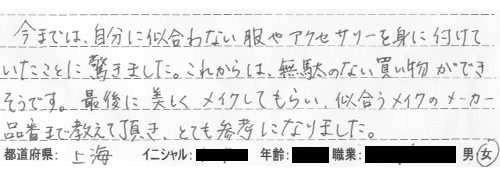 今までは、自分に似合わない服やアクセサリーを身に付けて
いたことに驚きました。これからは、無駄のない買い物ができ
そうです。最後に美しくメイクしてもらい、似合うメイクのメーカー
品番まで教えて頂き、とても参考になりました。
都道府県: 上海 イニシャル: 年齢: 職業: 男 女